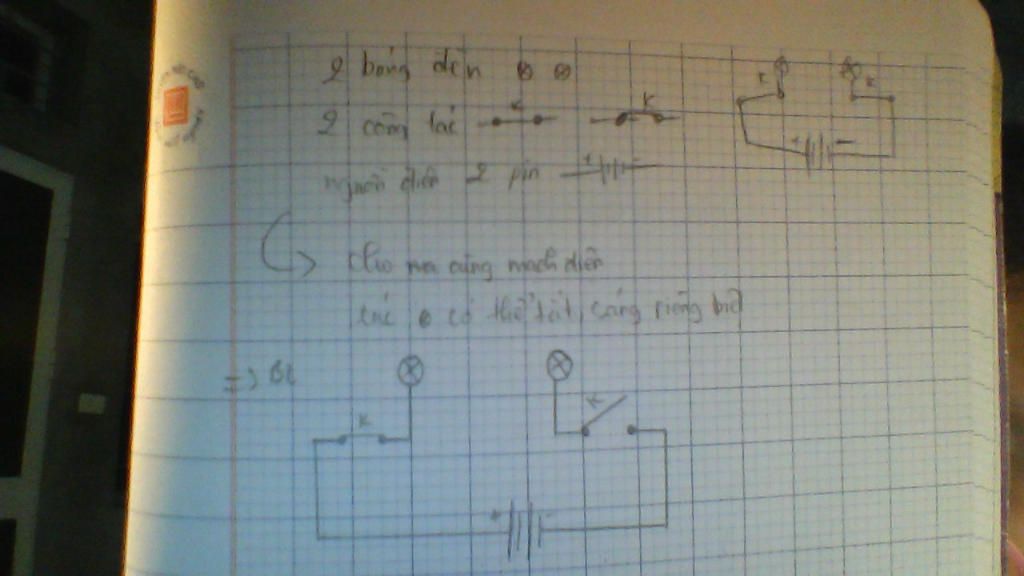 2 bóng đèn
2 công tắc K K
nguồn điện 2 pin + -
cùng mạch điện
có thể tắt, sáng riêng biệ
=>
K K
+ -
K K
+ -